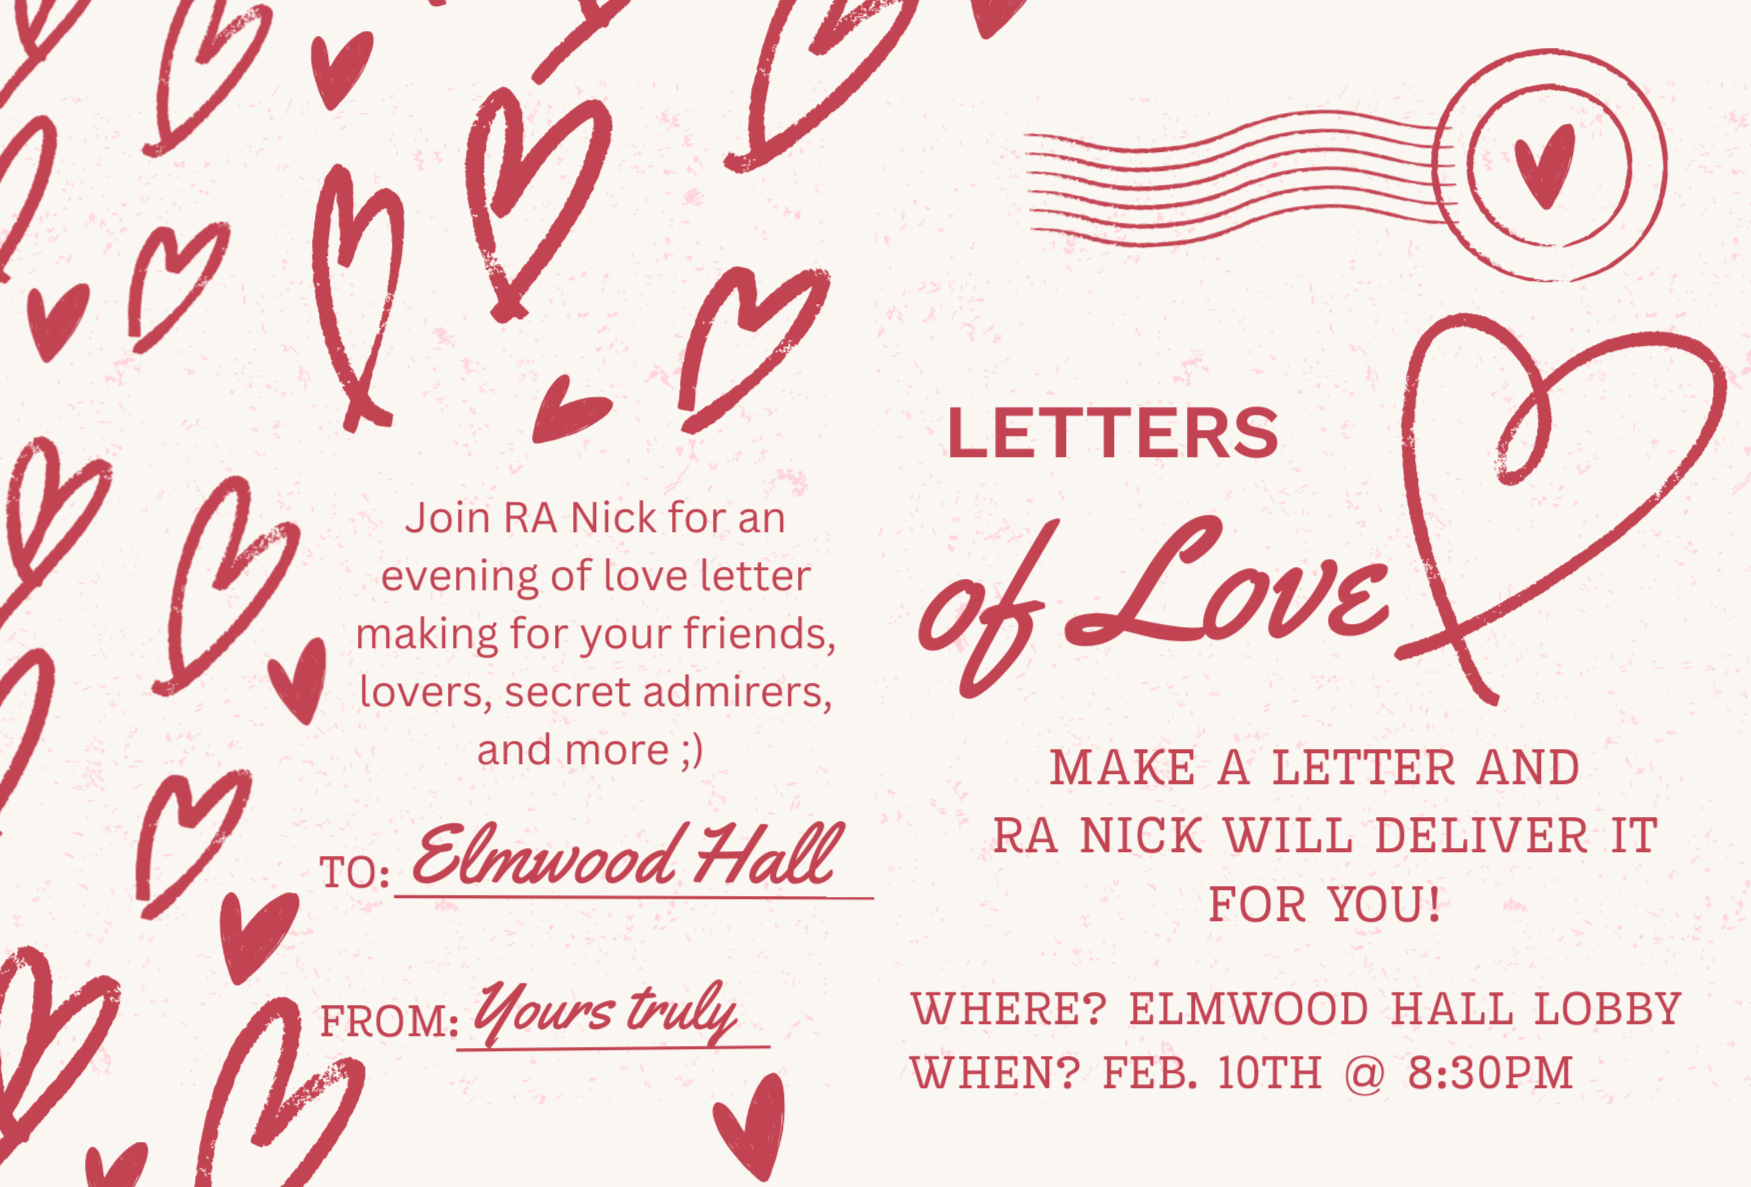 Join RA Nick for an
evening of love letter
making for your friends,
lovers, secret admirers,
and more ;)
TO: Elmwood Hall
FROM: Yours truly
LETTERS
of Love
MAKE A LETTER AND
RA NICK WILL DELIVER IT
FOR YOU!
WHERE? ELMWOOD HALL LOBBY
WHEN? FEB. 10TH @ 8:30PM